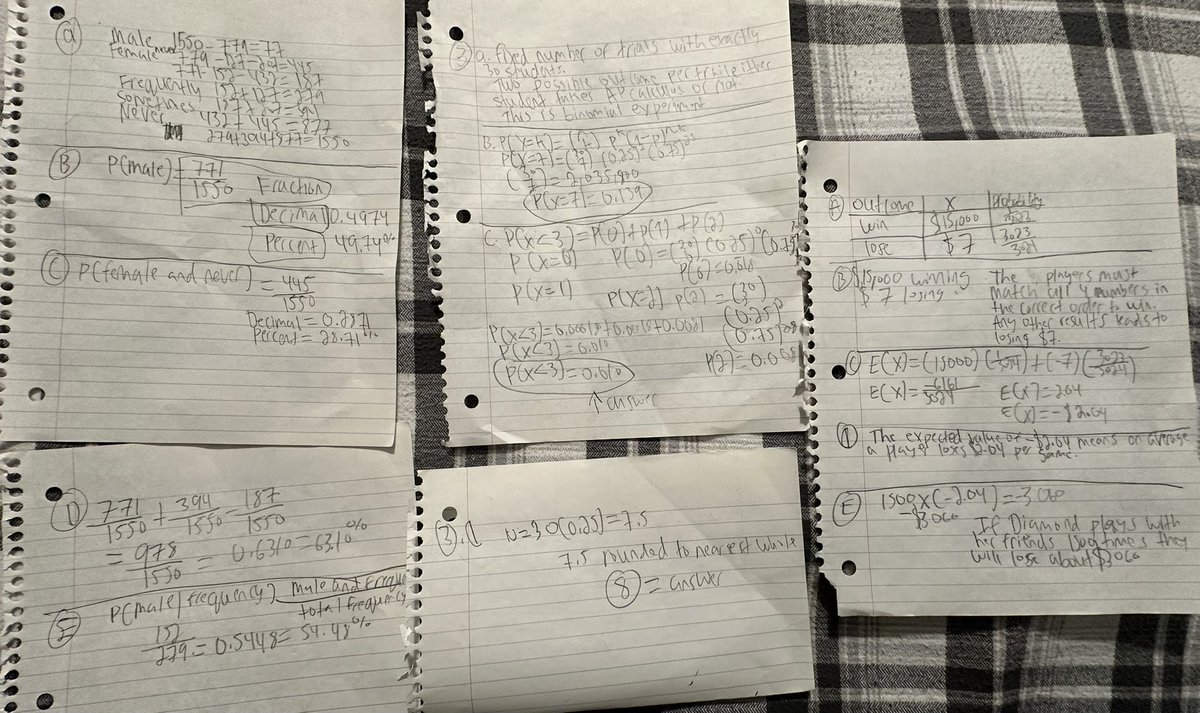 (a) Male 1550 - 779 = 77
female never 779 - 127 - 207 = 445
771 - 152 - 432 = 187
Frequently 152 + 127 = 279
Sometimes 187 + 207 = 394
Never 432 + 445 = 877
279 + 394 + 877 = 1550
(B) P(male) = 771
1550 Fraction
Decimal 0.4974
Percent 49.74%
(C) P(female and never) = 445
1550
Decimal = 0.2871
Percent = 28.71%
(D) 771/1550 + 394/1550 - 187/1550
= 978/1550 = 0.6310 = 63.10%
(E) P(male|frequency) Male and Freque
total frequency
152/279 = 0.5448 = 54.48%
(3) a. fixed number of trials with exactly
30 students.
Two possible outcome per trail either
student takes AP calculus or not.
This is binomial experiment
B. P(X=k) = (n k) p^k (1-p)^n-k
P(X=7) = (30 7) (0.25)^7 (0.75)^23
(30 7) = 2,035,800
P(X=7) = 0.139
C. P(X<3) = P(0) + P(1) + P(2)
P(X=0) P(0) = (30 0) (0.25)^0 (0.75)
P(0) = 0.018
P(X=1) P(X=2) P(2) = (30 2)
(0.25)^2
(0.75)^28
P(X<3) = 0.00018 + 0.0018 + 0.0081
P(X<3) = 0.010
P(2) = 0.008
P(X<3) = 0.010
↑ answer
(3).d N = 30(0.25) = 7.5
7.5 rounded to nearest whole
(8) = answer
(A) outcome X Probability
win $15,000
lose $7 3023
(B) $15,000 winning
$7 losing.
The players must
match all 4 numbers in
the correct order to win.
Any other results leads to
losing $7.
(C) E(X) = (15000) (1/3024) + (-7) (3023/3024)
E(X) = 6161/3024 E(X) = 204
E(X) = -$2.04
(D) The expected value of -$2.04 means on average
a player loses $2.04 per game.
(E) 1500 x (-2.04) = -3060
-$3060
If Diamond plays with
her friends 1500 times they
will lose about $3060